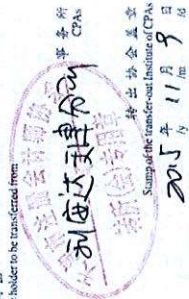 holder to be transferred from
注册会计师协
利安达天津分所
事务所
CPAs
转所(会)专用章
转出协会盖章
Stamp of the transfer-out Institute of CPAs
2015 年 11 月 9 日
/y /m /d